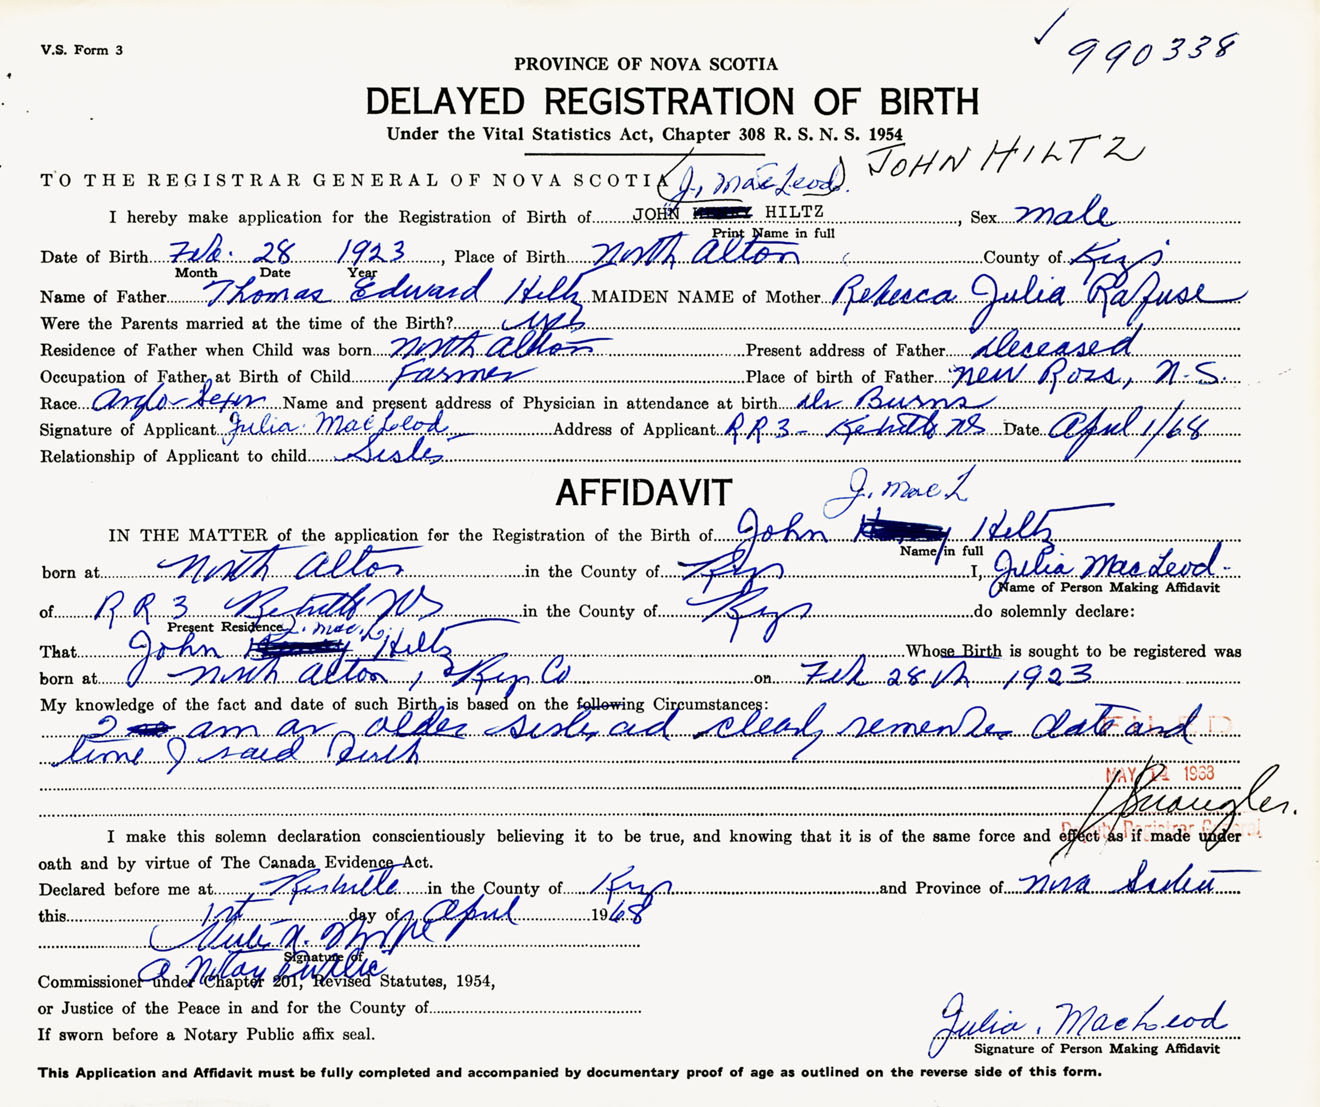 V.S. Form 3
990338
PROVINCE OF NOVA SCOTIA
DELAYED REGISTRATION OF BIRTH
Under the Vital Statistics Act, Chapter 308 R. S. N. S. 1954
JOHN HILTZ
TO THE REGISTRAR GENERAL OF NOVA SCOTIA (J. MacLeod)
I hereby make application for the Registration of Birth of JOHN HILTZ, Sex male
Print Name in full
Date of Birth Feb. 28 1923, Place of Birth North Alton County of Kings
Month Date Year
Name of Father Thomas Edward Hiltz MAIDEN NAME of Mother Rebecca Julia Rafuse
Were the Parents married at the time of the Birth? yes
Residence of Father when Child was born North Alton Present address of Father deceased
Occupation of Father at Birth of Child Farmer Place of birth of Father New Ross, N.S.
Race Anglo- Name and present address of Physician in attendance at birth Dr Burns
Signature of Applicant Julia MacLeod Address of Applicant RR3 - Kentville NS Date April 1/68
Relationship of Applicant to child Sister
AFFIDAVIT
J. MacL
IN THE MATTER of the application for the Registration of the Birth of John Hiltz
Name in full
born at North Alton in the County of Kings I, Julia MacLeod
Name of Person Making Affidavit
of RR3 Kentville NS in the County of Kings do solemnly declare:
Present Residence J. Mac.L.
That John Hiltz Whose Birth is sought to be registered was
born at North Alton, Kings Co on Feb 28th 1923
My knowledge of the fact and date of such Birth is based on the following Circumstances:
I am an older sister and clearly remember date and
time of said birth
FILED
MAY 14 1968
Deputy Registrar General
I make this solemn declaration conscientiously believing it to be true, and knowing that it is of the same force and effect as if made under
oath and by virtue of The Canada Evidence Act.
Declared before me at Kentville in the County of Kings and Province of Nova Scotia
this 1st day of April 1968
Signature of
A Notary Public
Commissioner under Chapter 201, Revised Statutes, 1954,
or Justice of the Peace in and for the County of
If sworn before a Notary Public affix seal.
Julia MacLeod
Signature of Person Making Affidavit
This Application and Affidavit must be fully completed and accompanied by documentary proof of age as outlined on the reverse side of this form.